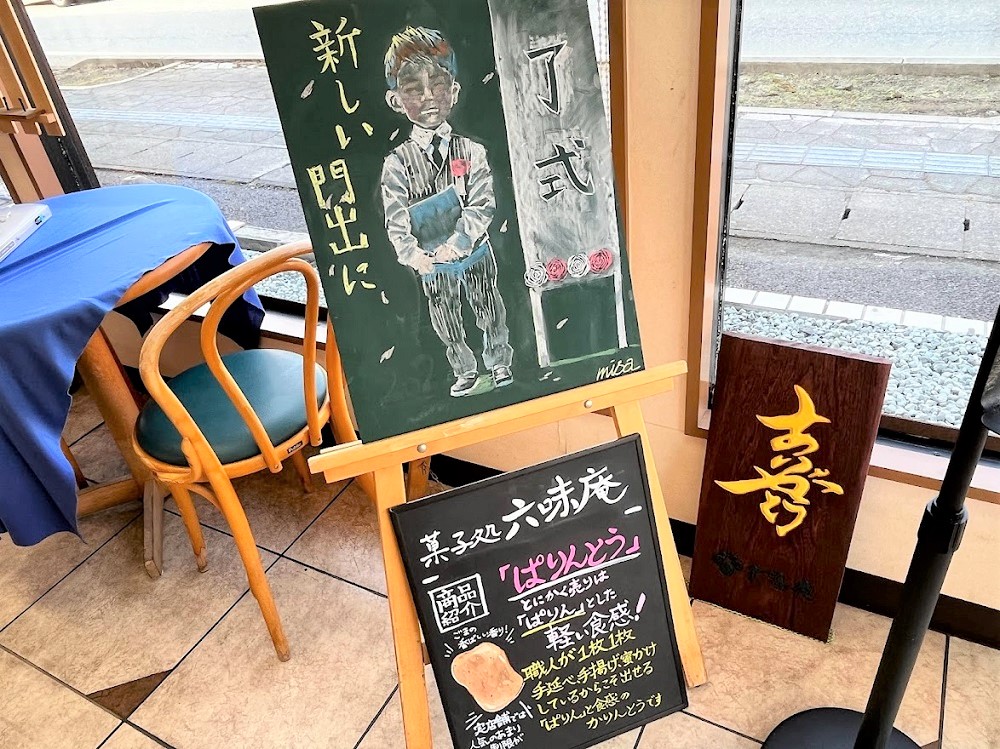 新しい門出に
了式
misa
菓子処 六味庵
商品
紹介
「ぱりんとう」
とにかく売りは
「ぱりん」とした
軽い食感!
ごまの
香ばしい香り!
職人が1枚1枚
手延べ、手揚げ、蜜かけ
しているからこそ出せる
「ぱりん」と食感の
かりんとうです
実店舗では
人気のあまり